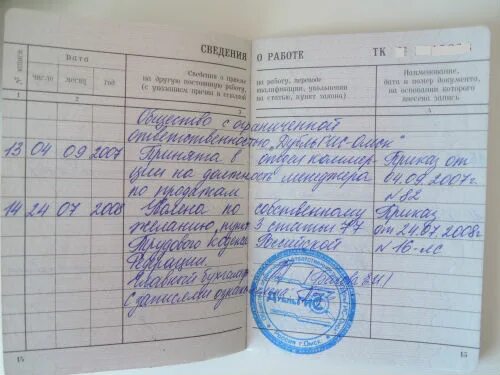 СВЕДЕНИЯ О РАБОТЕ ТК
№ записи
Дата
число месяц год
Сведения о приеме
на другую постоянную работу,
(с указанием причин и ссылкой
на работу, переводе
квалификации, увольнении
на статью, пункт закона)
Наименование,
дата и номер документа,
на основании которого
внесена запись
1 2 3 4
Общество с ограниченной
ответственностью "ДубльГИС-Омск"
13 04 09 2007 Принята в отдел коммер- Приказ от
ции на должность менеджера 04.09.2007г.
по продажам №82
14 24 07 2008 Уволена по собственному Приказ
желанию, пункт 3 статьи 77 от 24.07.2008г
Трудового кодекса Российской №16-лс
Федерации.
Главный бухгалтер
С записями
ДубльГИС
г. Омск
14 15